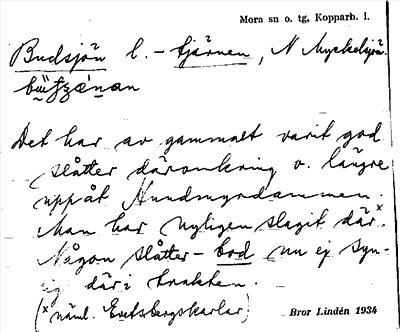 Mora sn o. tg, Kopparb. l.
Budsjön l. - tjärnen, N Myckelsjön.
Det har av gammalt varit god
slåtter däromkring o. längre
uppåt Hundmyrdammen.
Man har nyligen slagit där.x
Någon slåtter-bod nu ej syn-
lig där i trakten.
(x näml. Evertsbergskarlar)
Bror Lindén 1934